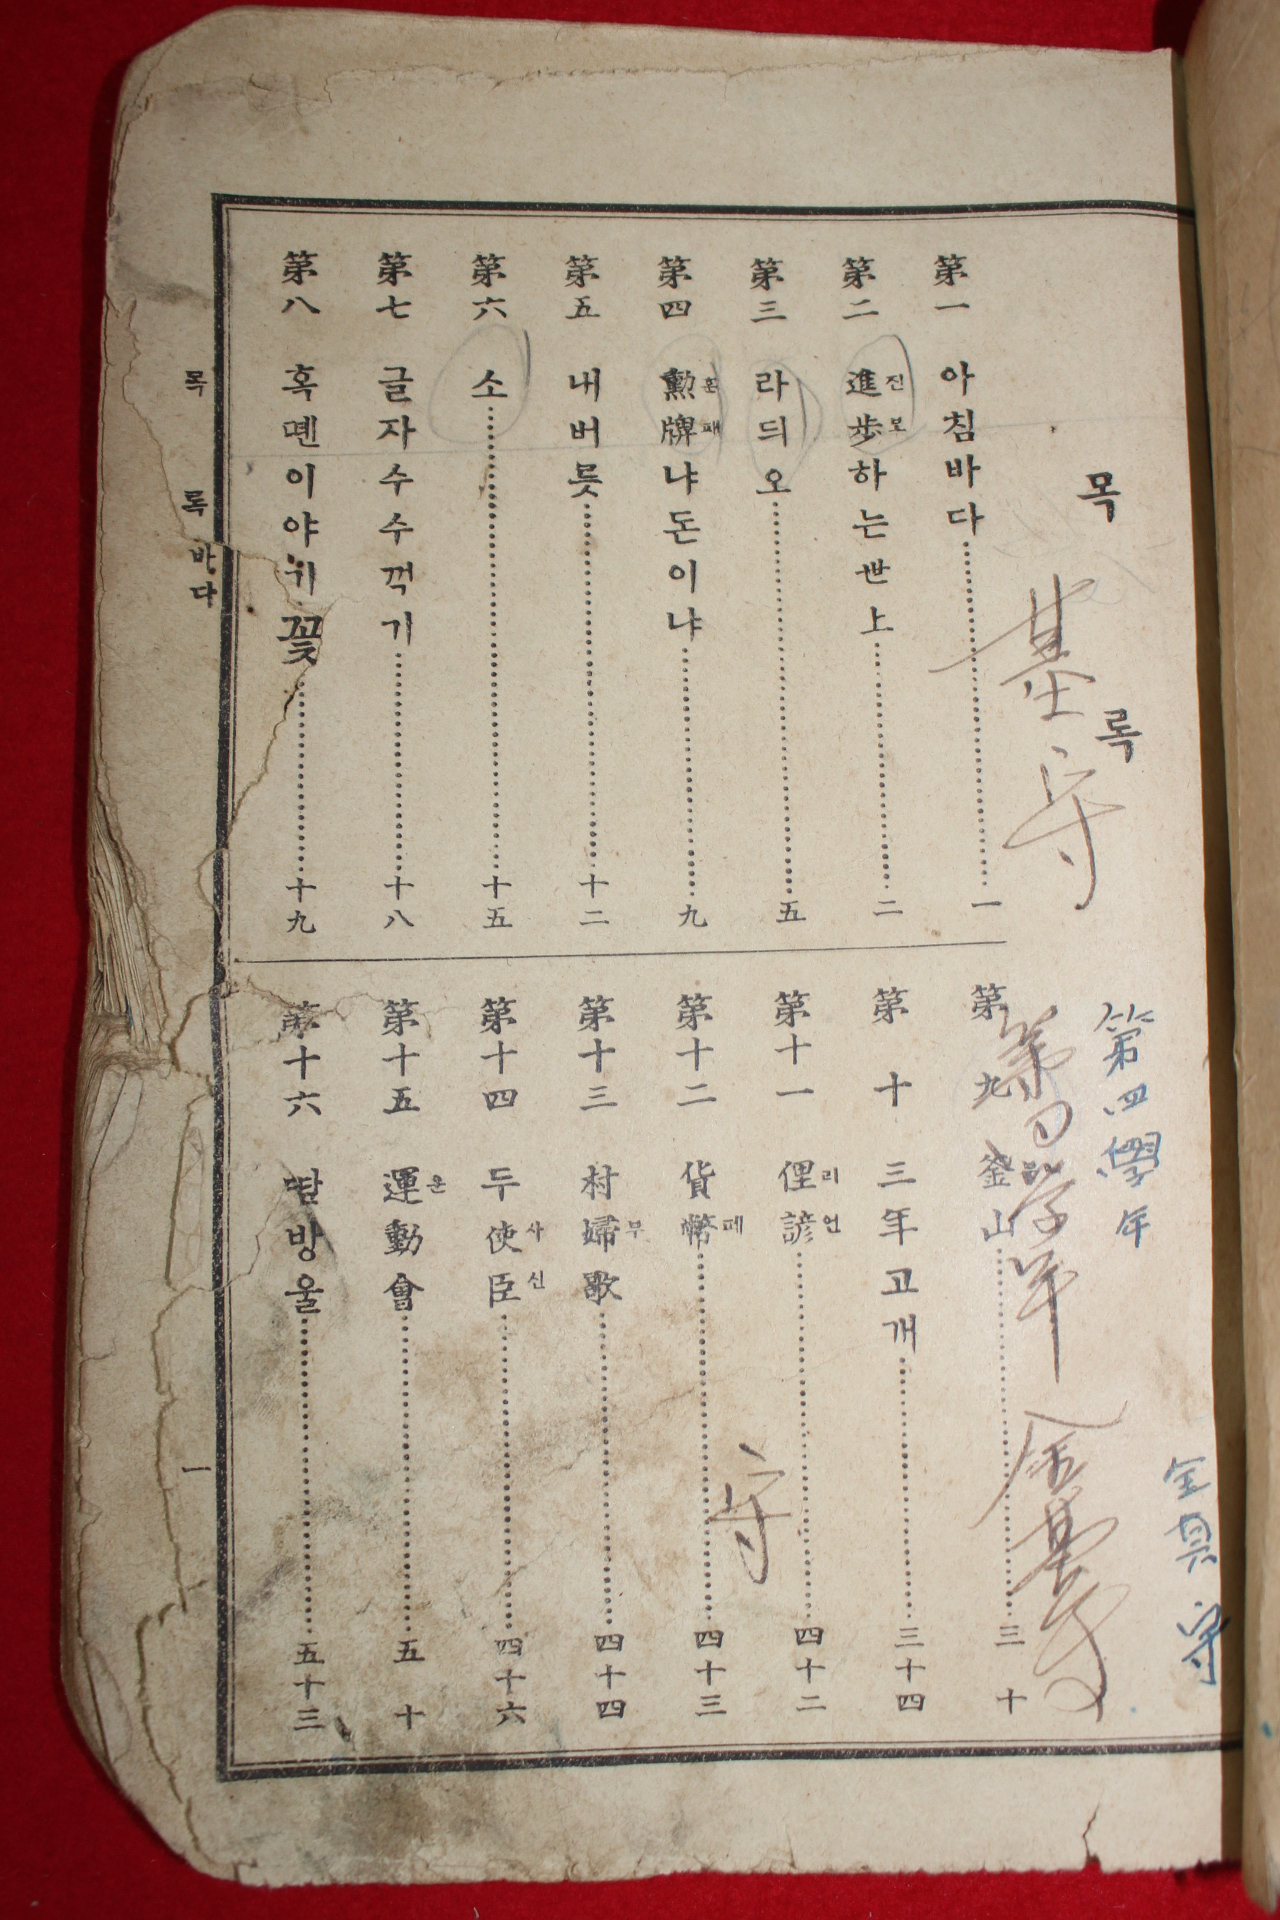 목록
第一 아침바다 一
第二 進步하는世上 二
진보
第三 라듸오 五
第四 勳牌냐돈이냐 九
훈패
第五 내버릇 十二
第六 소 十五
第七 글자수수꺽기 十八
第八 혹뗀이야기 十九
꽃
바다
第九 釜山 三十
第十 三年고개 三十四
第十一 俚諺 四十二
리언
第十二 貨幣 四十三
폐
第十三 村婦歌 四十四
부
第十四 두使臣 四十六
사신
第十五 運動會 五十
운
第十六 땀방울 五十三
목록 一
基守
第四學年
金基守
守
第四學年